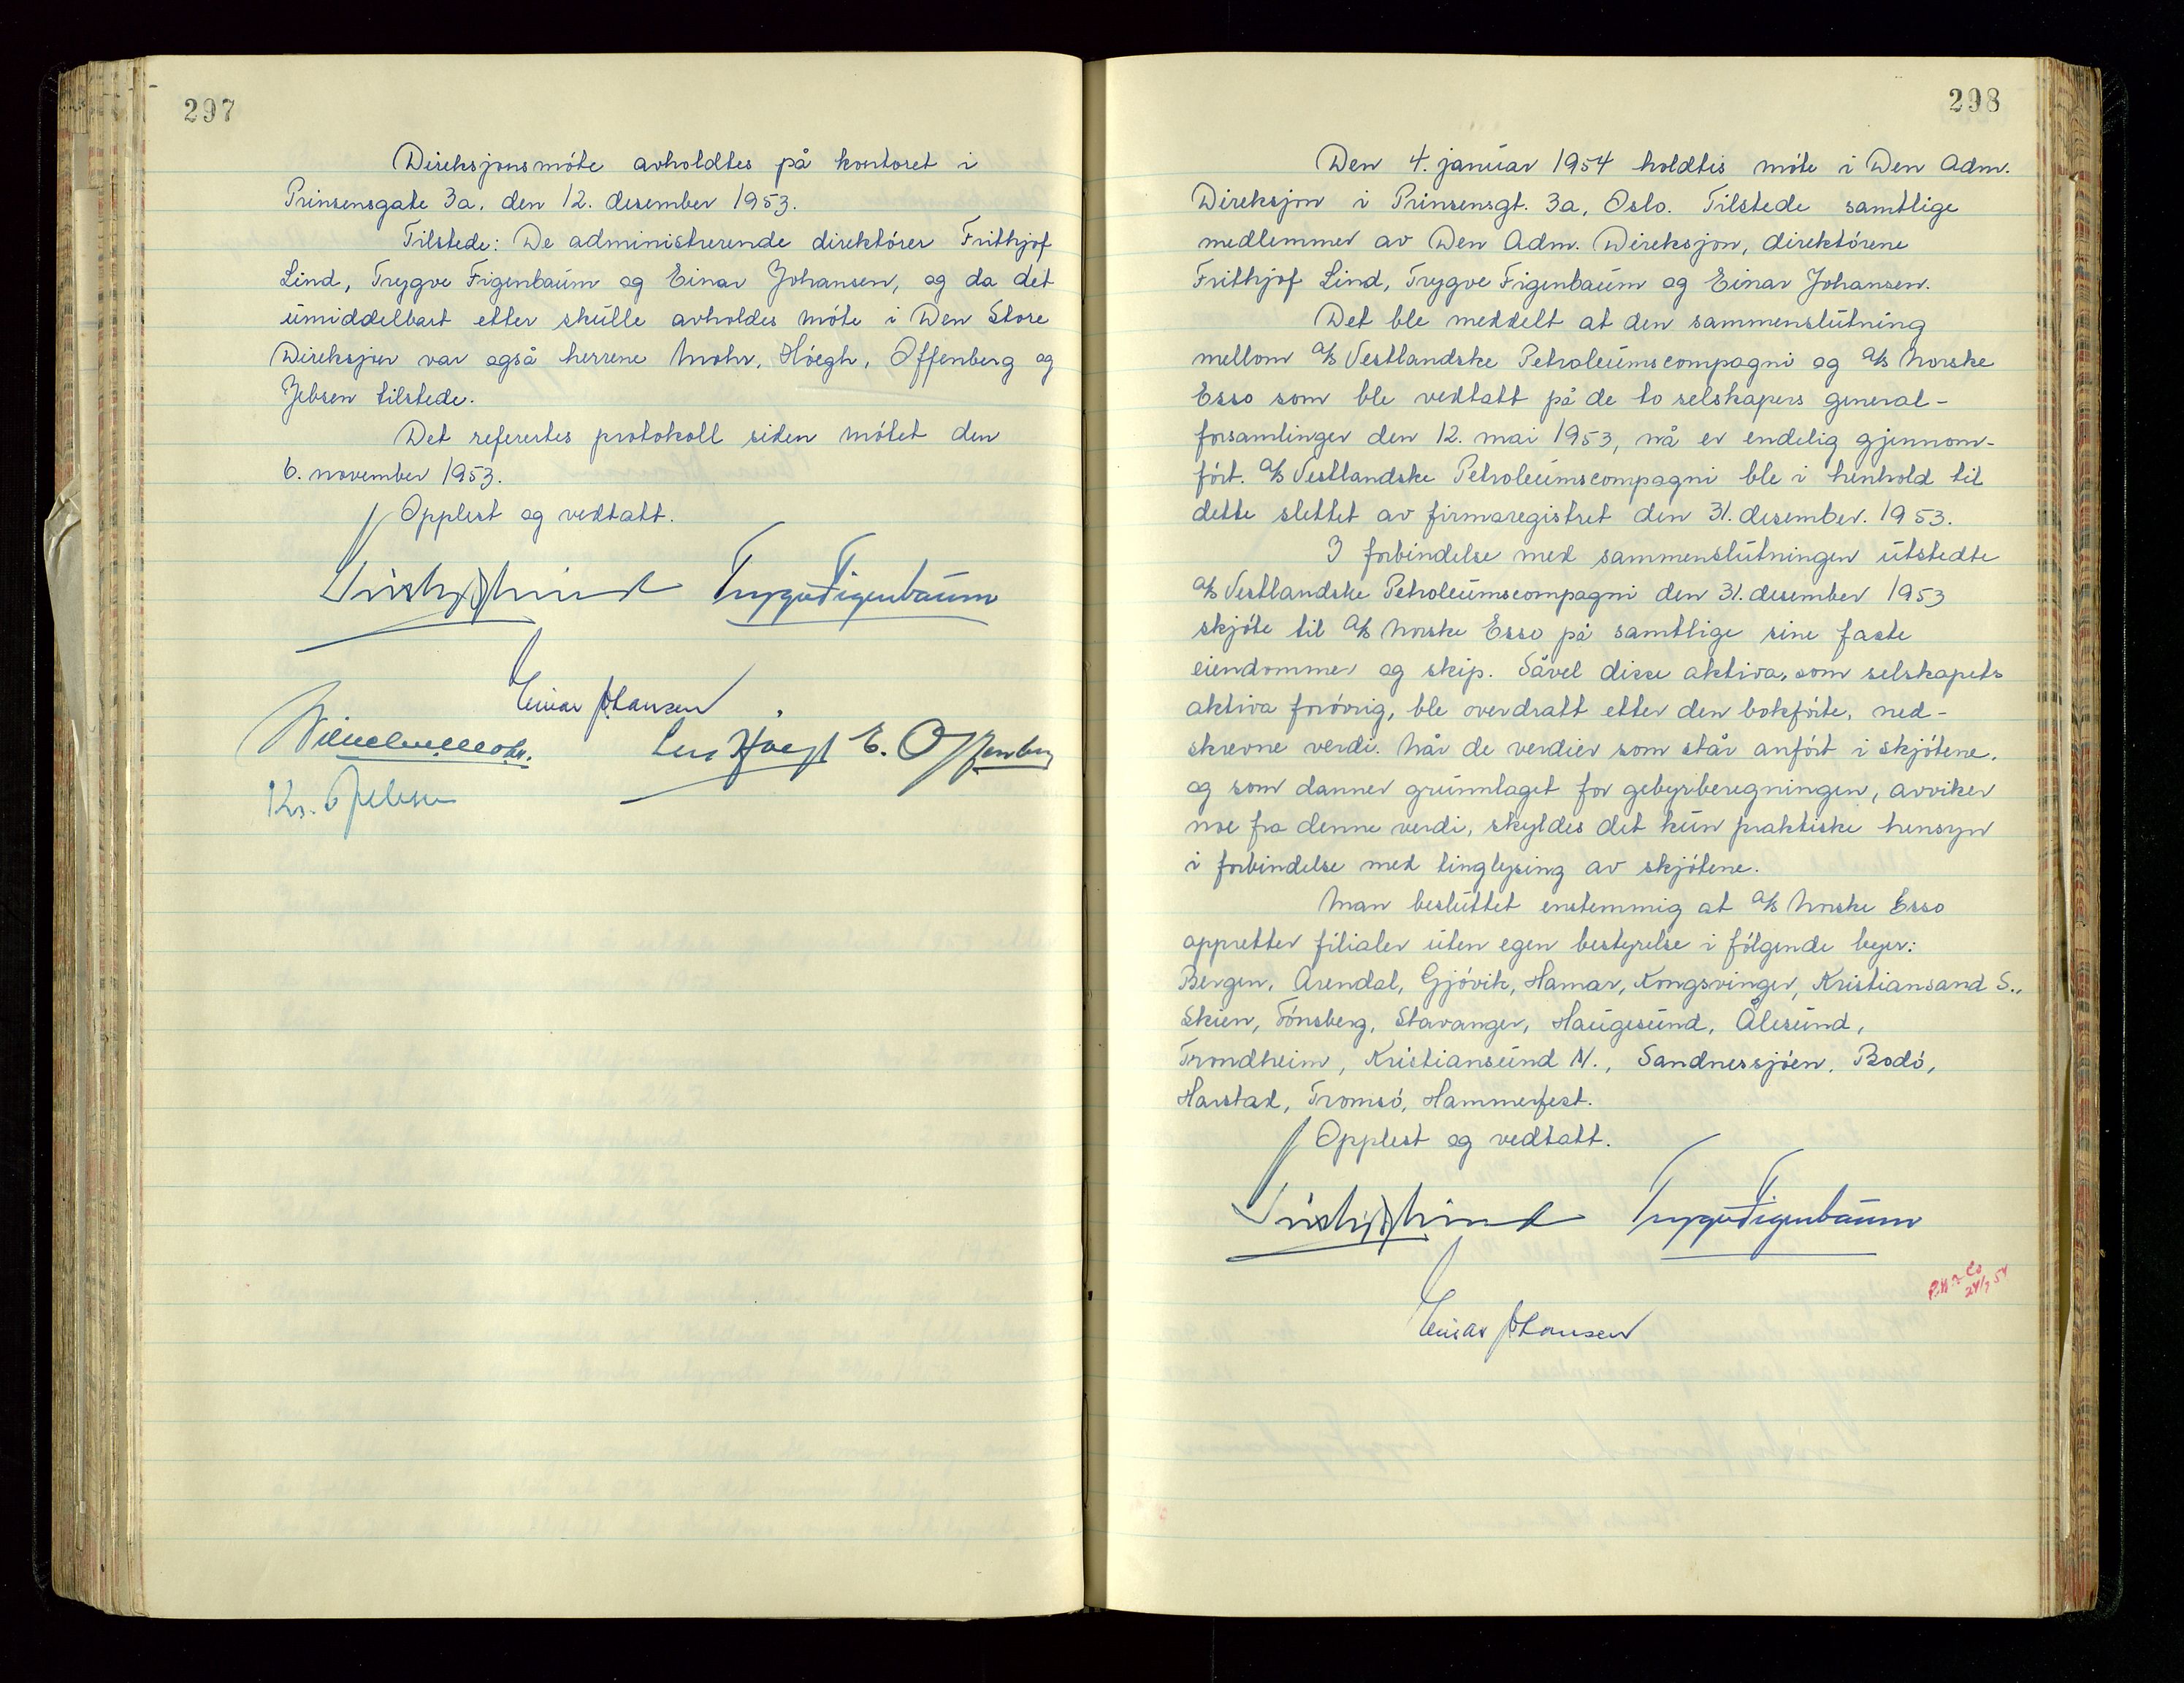 297
Direksjonsmöte avholdtes på kontoret i
Prinsensgate 3a. den 12. desember 1953.
Tilstede: De administrerende direktörer Frithjof
Lind, Trygve Figenbaum og Einar Johansen, og da det
umiddelbart etter skulle avholdes möte i Den Store
Direksjon var også herrene Mohr, Höegh, Offenberg og
Jebsen tilstede.
Det referertes protokoll siden mötet den
6. november 1953.
Opplest og vedtatt.
Frithjof Lind Trygve Figenbaum
Einar Johansen
Wilhelm Mohr. Leif Höegh E. Offenberg
Kr. Jebsen
298
Den 4. januar 1954 holdtes möte i Den Adm.
Direksjon i Prinsensgt. 3a, Oslo. Tilstede samtlige
medlemmer av Den Adm. Direksjon, direktörene
Frithjof Lind, Trygve Figenbaum og Einar Johansen.
Det ble meddelt at den sammenslutning
mellom A/S Vestlandske Petroleumscompagni og A/S Norske
Esso som ble vedtatt på de to selskapers general-
forsamlinger den 12. mai 1953, nå er endelig gjennom-
fört. A/S Vestlandske Petroleumscompagni ble i henhold til
dette slettet av firmaregistret den 31. desember. 1953.
I forbindelse med sammenslutningen utstedte
A/S Vestlandske Petroleumscompagni den 31. desember 1953
skjöte til A/S Norske Esso på samtlige sine faste
eiendommer og skip. Såvel disse aktiva, som selskapets
aktiva forövrig, ble overdratt etter den bokförte, ned-
skrevne verdi. Når de verdier som står anfört i skjötene,
og som danner grunnlaget for gebyrberegningen, avviker
noe fra denne verdi, skyldes det kun praktiske hensyn
i forbindelse med tinglysing av skjötene.
Man besluttet enstemmig at A/S Norske Esso
oppretter filialer uten egen bestyrelse i fölgende byer:
Bergen, Arendal, Gjövik, Hamar, Kongsvinger, Kristiansand S.,
Skien, Tönsberg, Stavanger, Haugesund, Ålesund,
Trondheim, Kristiansund N., Sandnessjöen, Bodö,
Harstad, Tromsö, Hammerfest.
Opplest og vedtatt.
Frithjof Lind Trygve Figenbaum
Einar Johansen